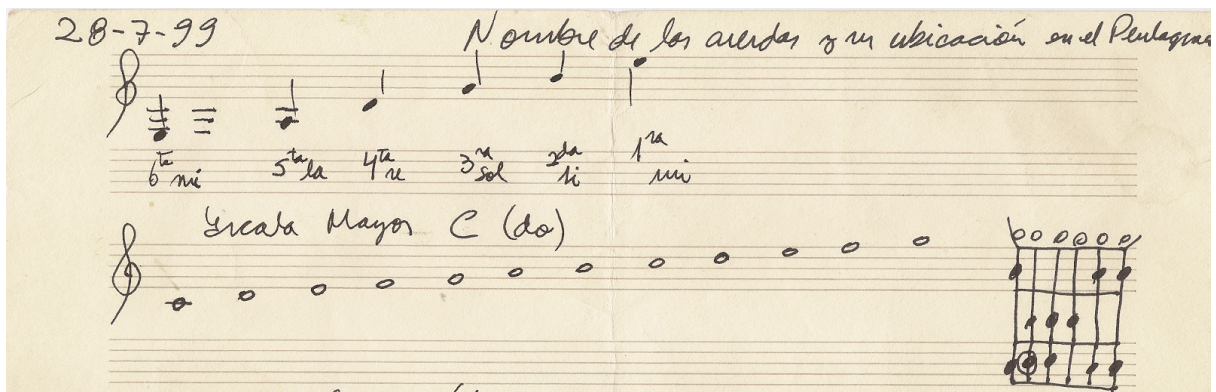 28-7-99
Nombre de las cuerdas y su ubicación en el Pentagrama
6ta mi 5ta la 4ta re 3ra sol 2da si 1ra mi
Escala Mayor C (do)